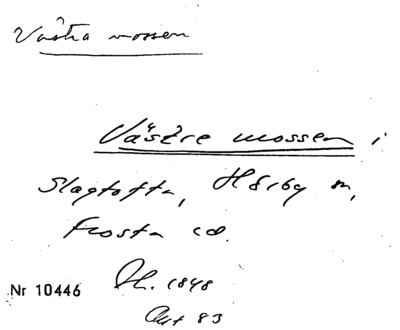 Västra mossen
Västre mossen i
Slagtofta, Hörby sn,
Frosta hd.
Nr 10446 Dk. 1848
Akt 83